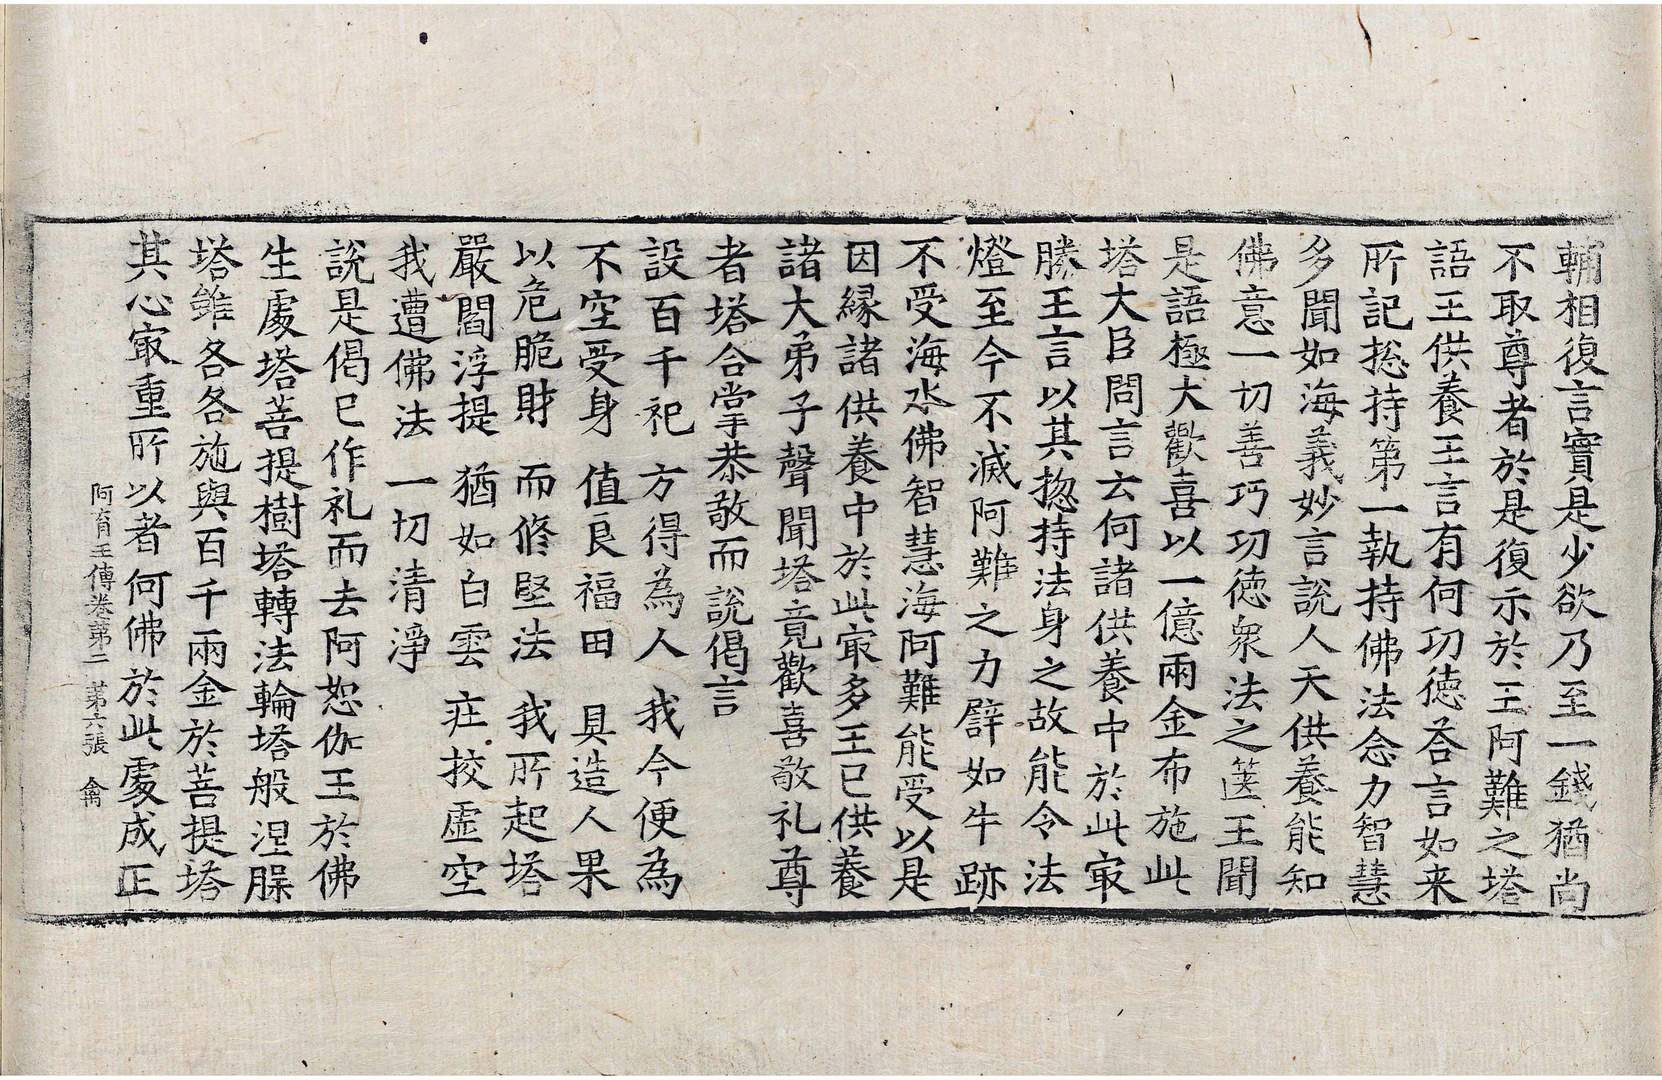 輔相復言實是少欲乃至一錢猶尚
不取尊者於是復示於王阿難之塔
語王供養王言有何功徳荅言如来
所記捴持第一執持佛法念力智慧
多聞如海義妙言說人天供養能知
佛意一切善巧功徳衆法之篋王聞
是語極大歡喜以一億兩金布施此
塔大臣問言云何諸供養中於此㝡
勝王言以其揔持法身之故能令法
燈至今不滅阿難之力譬如牛跡
不受海水佛智慧海阿難能受以是
因縁諸供養中於此㝡多王已供養
諸大弟子聲聞塔竟歡喜敬礼尊
者塔合掌恭敬而說偈言
設百千祀　方得為人　我今便為
不空受身　值良福田　具造人果
以危脆財　而修堅法　我所起塔
嚴閻浮提　猶如白雲　庄挍虛空
我遭佛法　一切清淨
說是偈已作礼而去阿恕伽王於佛
生處塔菩提樹塔轉法輪塔般涅槃
塔雖各各施與百千兩金於菩提塔
其心㝡重所以者何佛於此處成正
阿育王傳卷第二　第六張　禽